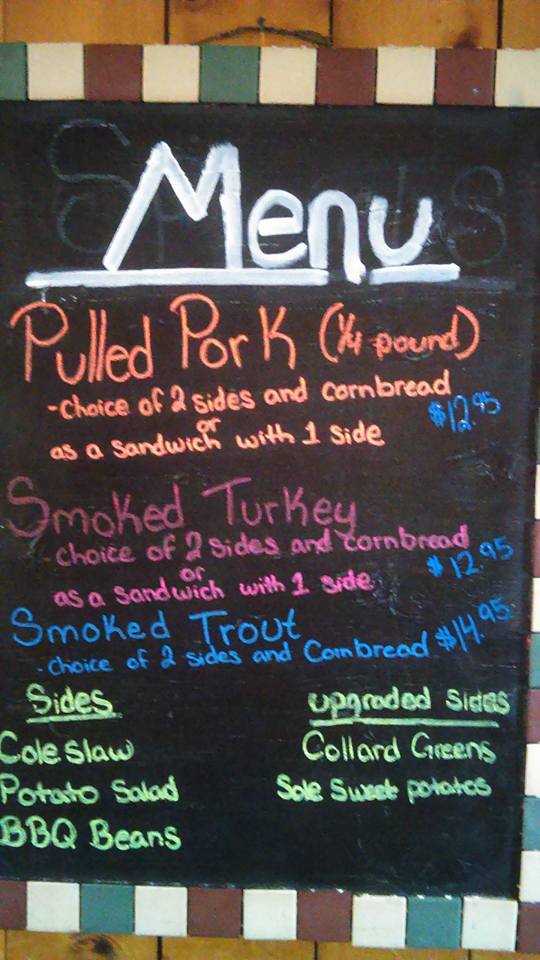 Menu
Pulled Pork (1/4 pound)
-choice of 2 sides and cornbread
or
as a sandwich with 1 side
$12.95
Smoked Turkey
- choice of 2 sides and cornbread
or
as a sandwich with 1 side
$12.95
Smoked Trout
- choice of 2 sides and Cornbread $14.95
Sides
Coleslaw
Potato Salad
BBQ Beans
upgraded sides
Collard Greens
Sole Sweet potatos